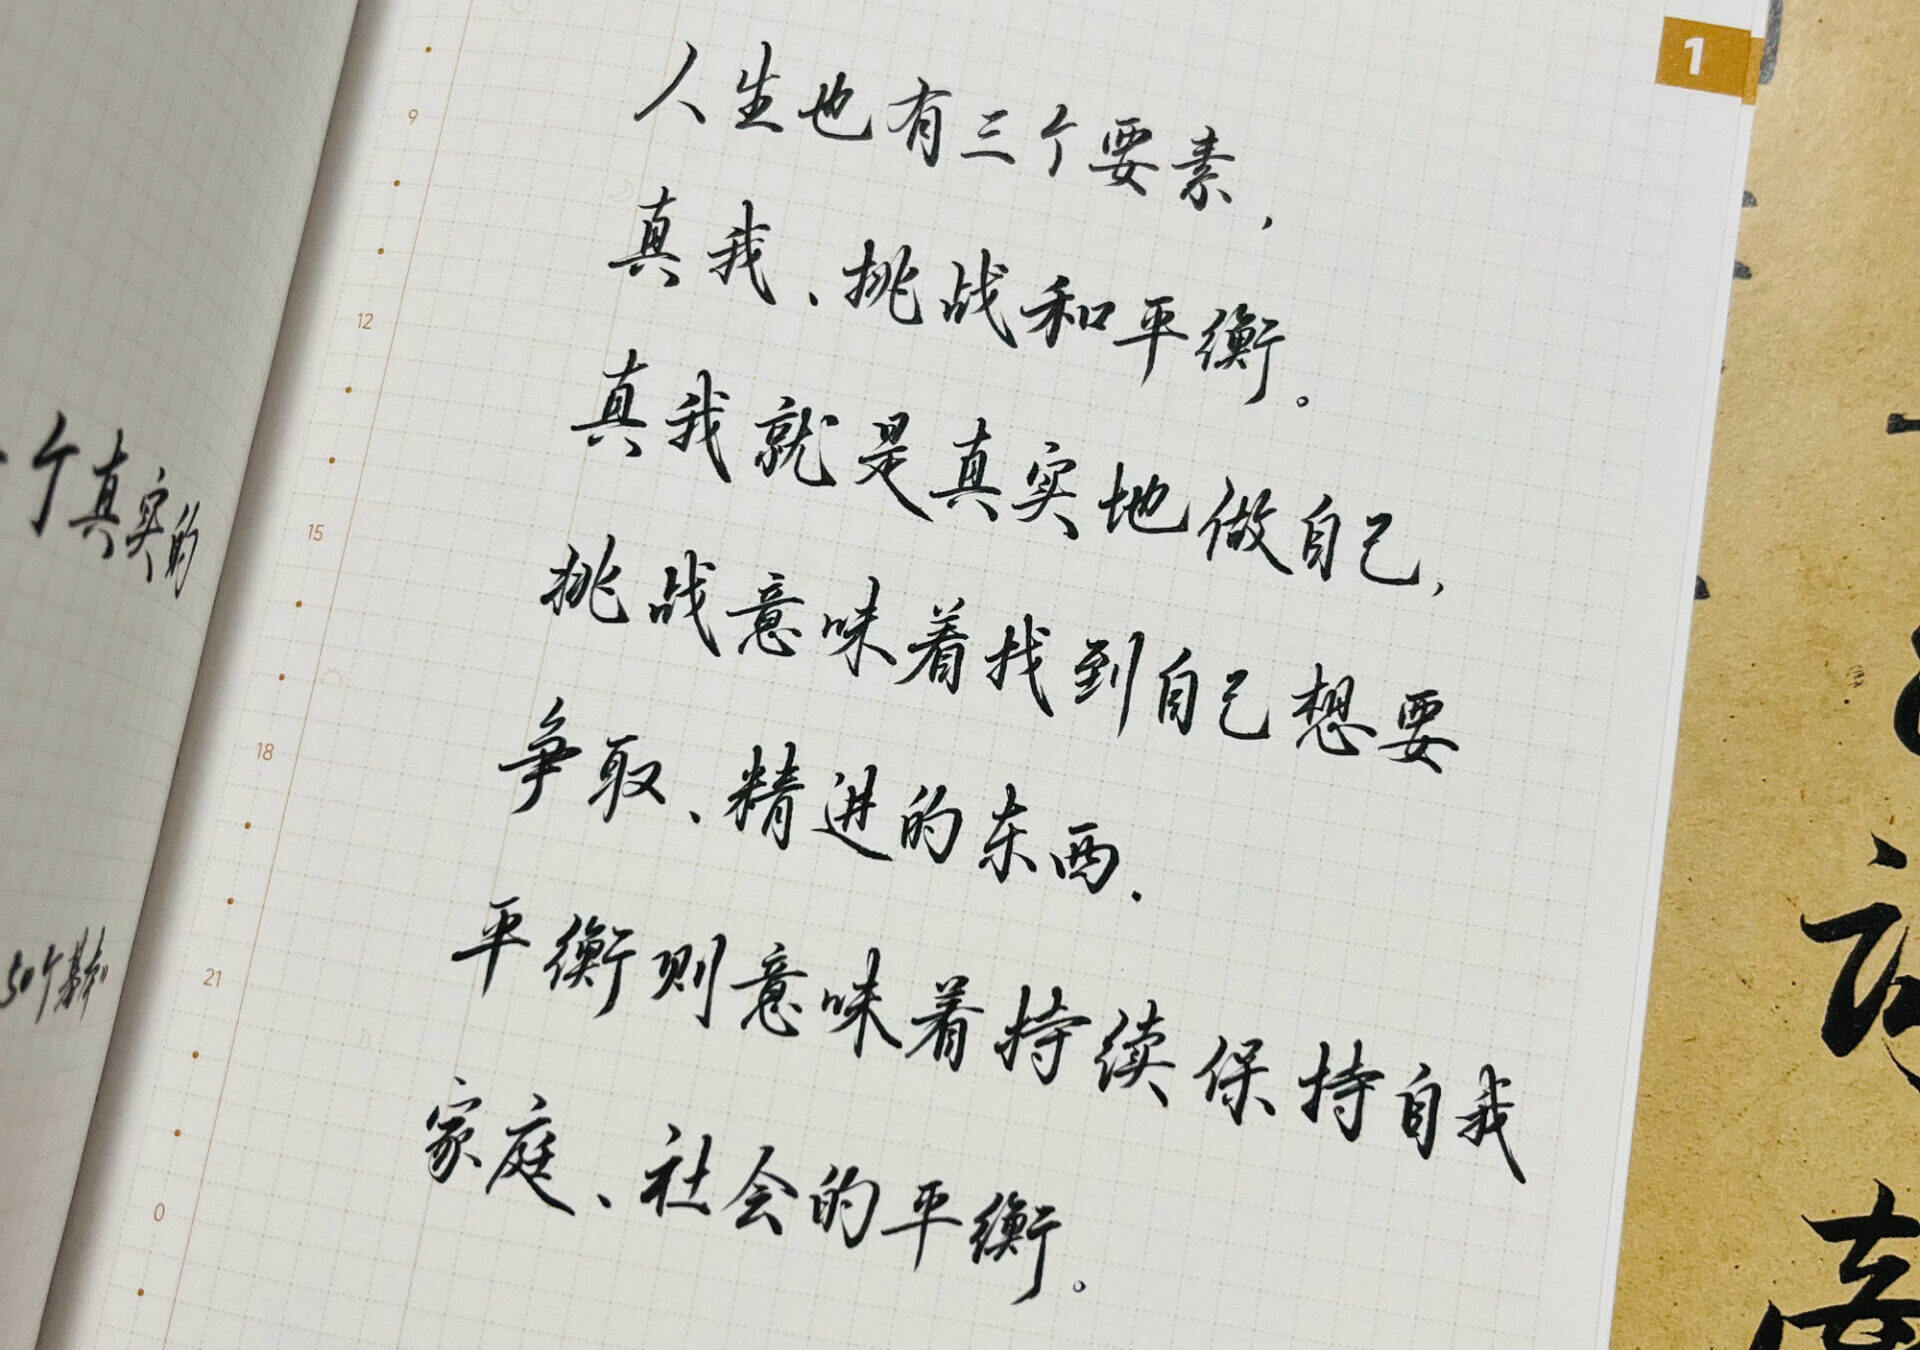 1
人生也有三个要素，
真我、挑战和平衡。
真我就是真实地做自己，
挑战意味着找到自己想要
争取、精进的东西.
平衡则意味着持续保持自我
家庭、社会的平衡。
9
12
15
18
21
0
个真实的
50个基本